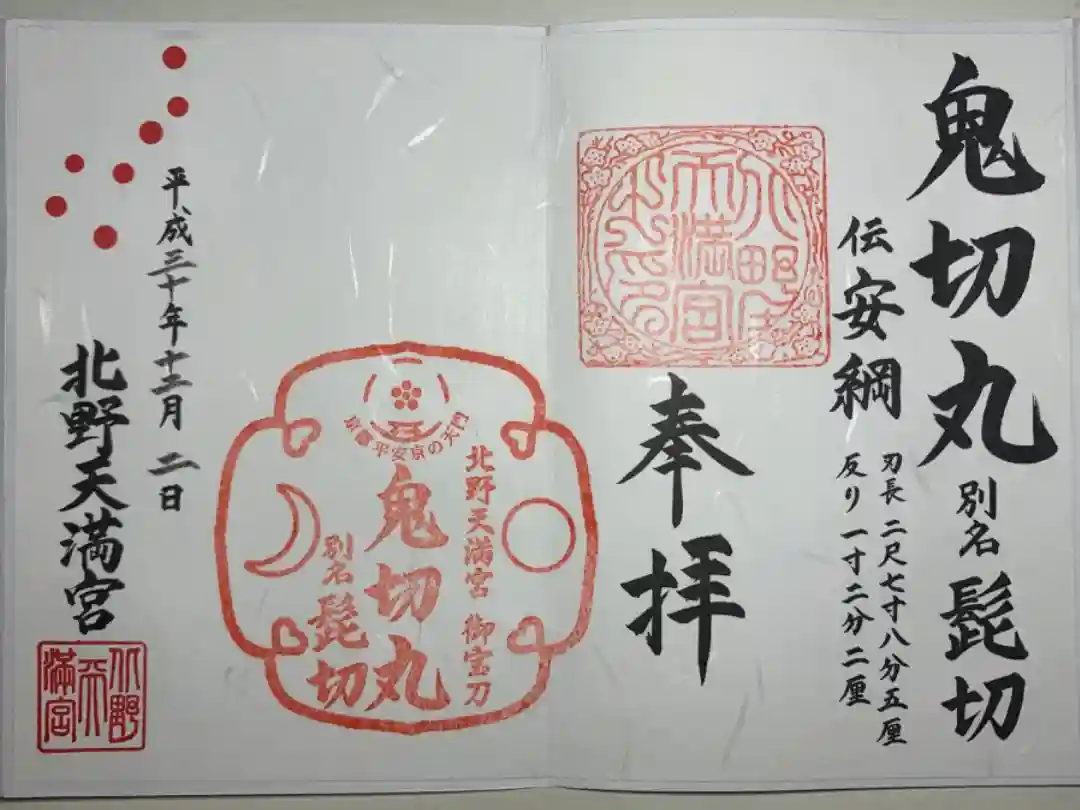 鬼切丸 別名 髭切
伝 安綱
刃長 二尺七寸八分五厘
反り 一寸二分二厘
奉拝
北野天満宮 御宝刀
鬼切丸
別名 髭切
京都平安京の天門
平成三十年十二月二日
北野天満宮
北野天満宮